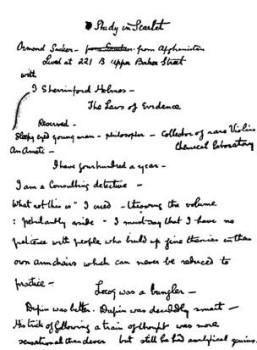 Study in Scarlet
Ormond Sacker - from Soudan from Afghanistan
Lived at 221 B Upper Baker Street
with
I Sherrinford Holmes -
The Laws of Evidence
Reserved -
Sleepy eyed young man - philosopher - Collector of rare Violins
An Amati - Chemical laboratory
I have four hundred a year -
I am a Consulting detective -
What rot this is" I cried - throwing the volume
: petulantly aside " I must say that I have no
patience with people who build up fine theories in their
own armchairs which can never be reduced to
practice -
Lecoq was a bungler -
Dupin was better. Dupin was decidedly smart -
His trick of following a train of thought was more
sensational than clever but still he had analytical genius.